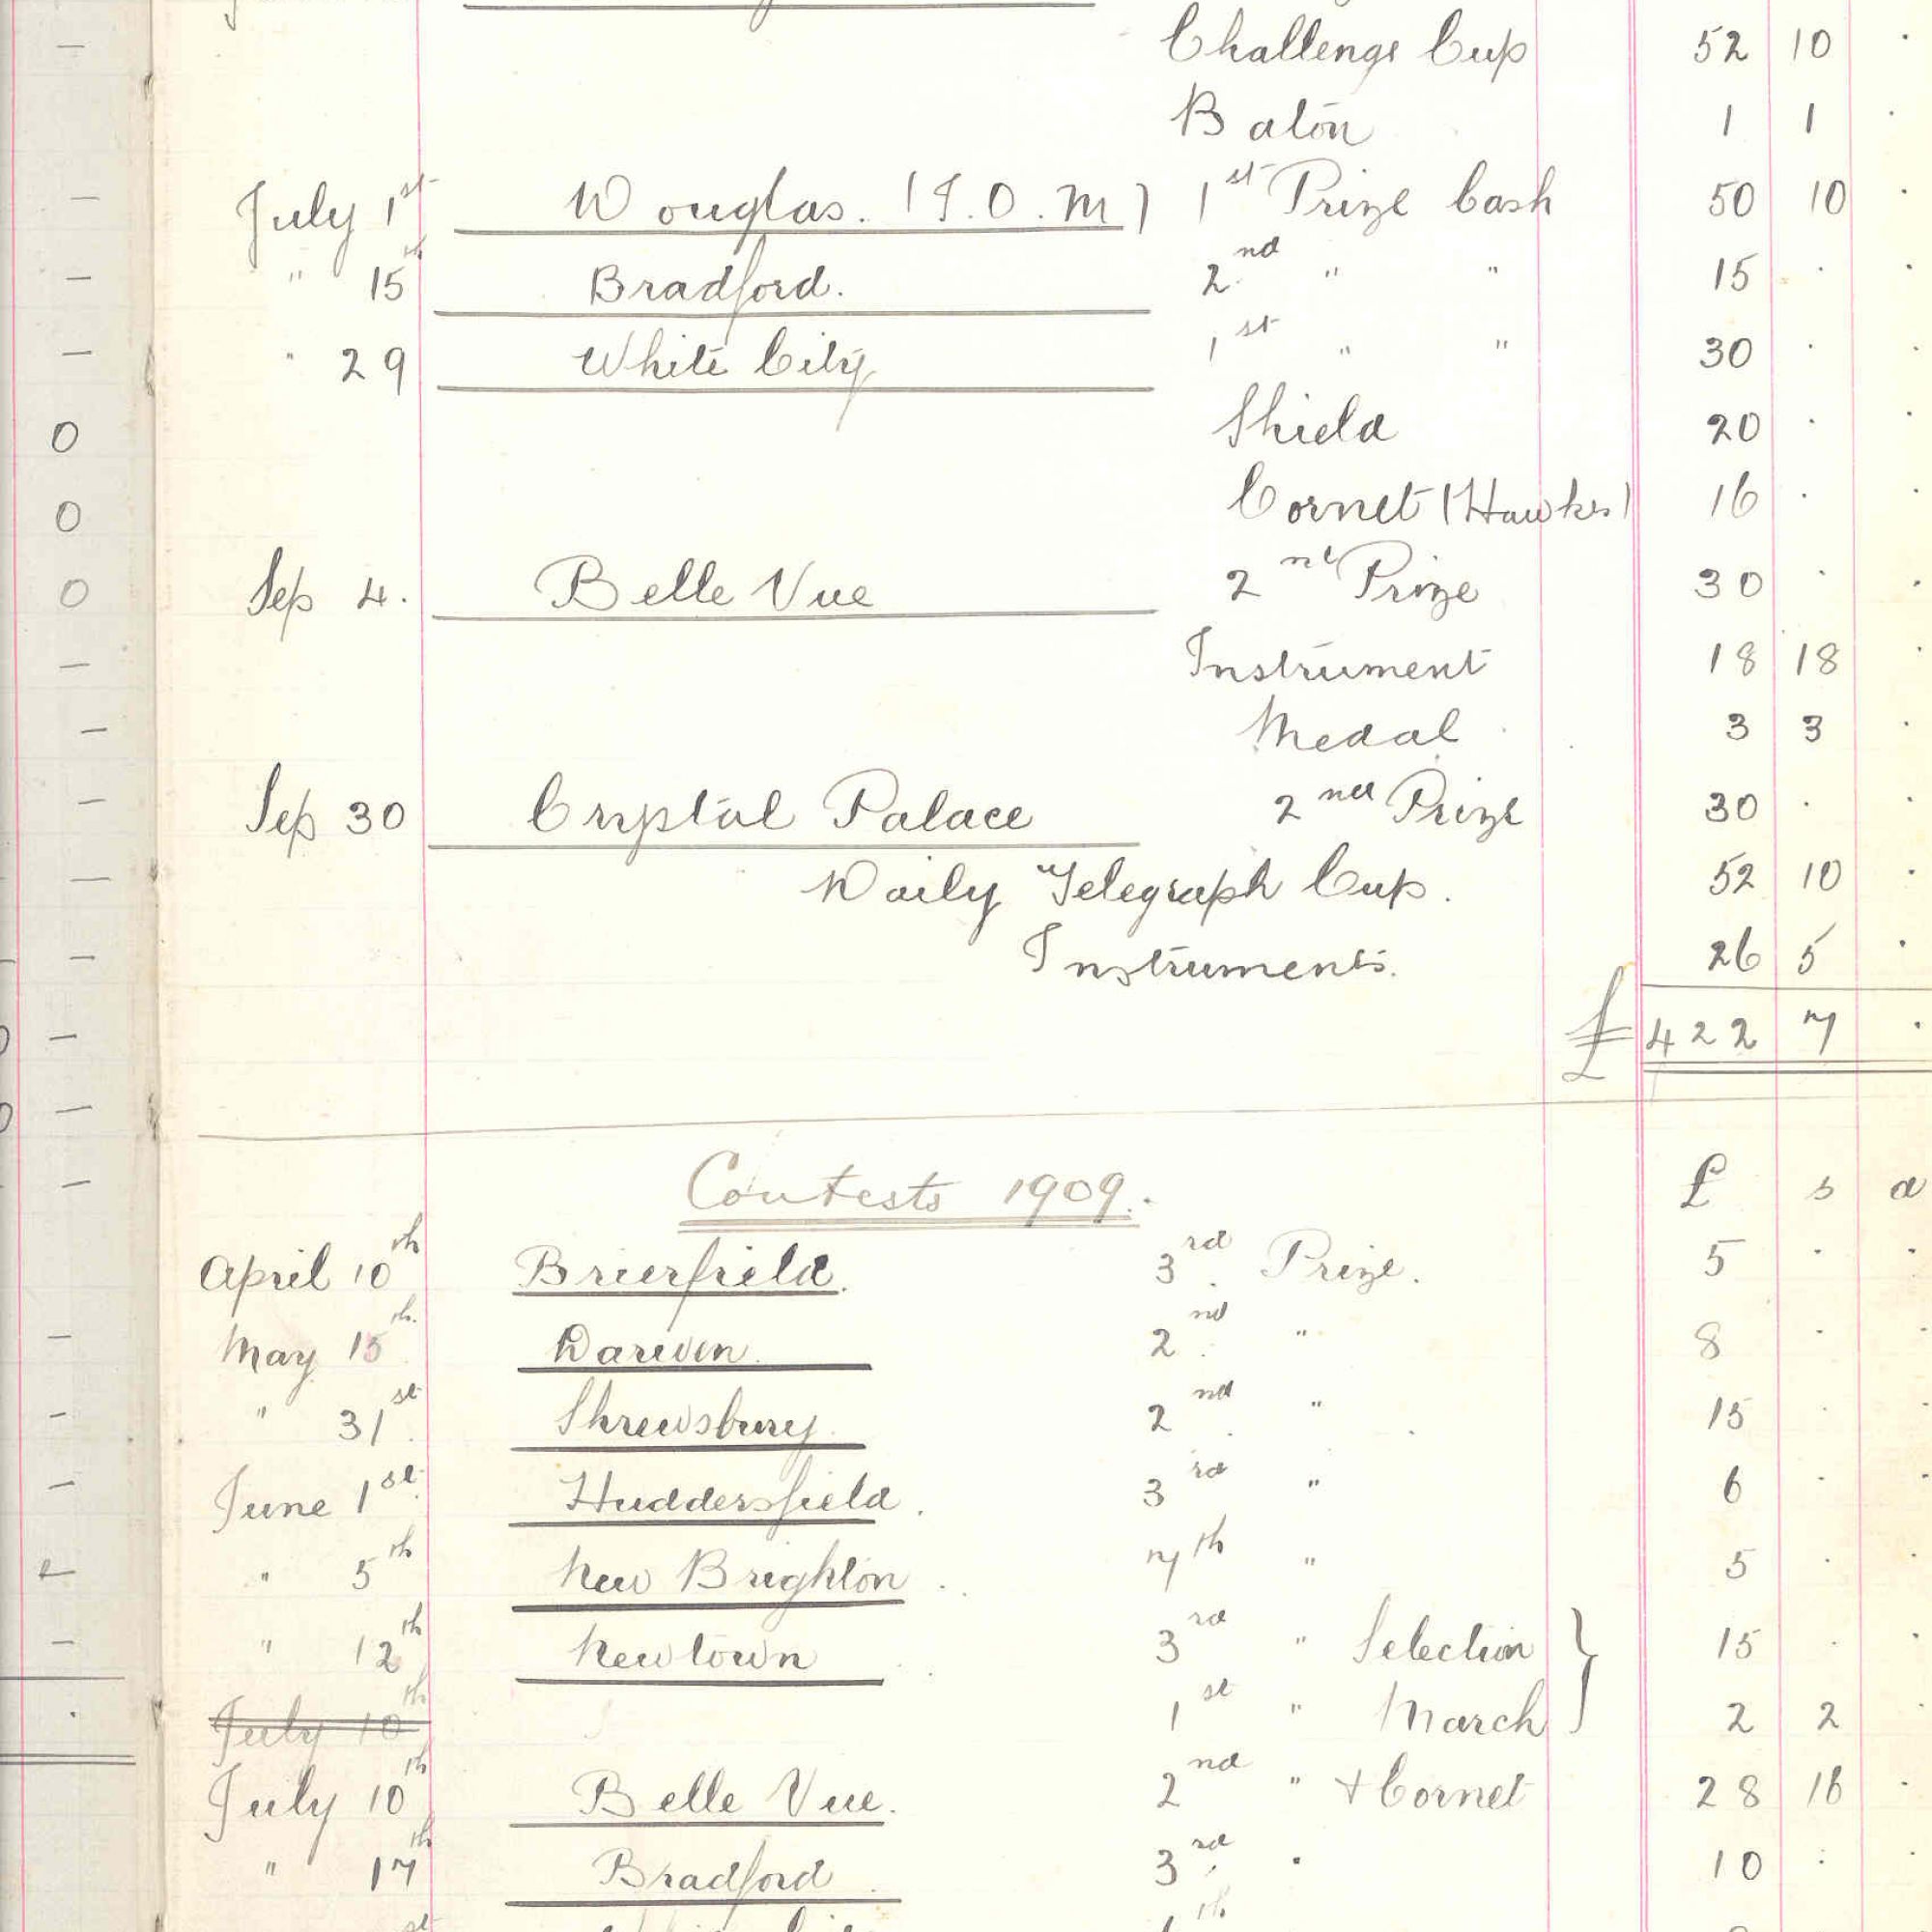 Challenge Cup 52 10 .
Baton 1 1 .
July 1st Douglas. (I.O.M) 1st Prize Cash 50 10 .
" 15th Bradford. 2nd " " 15 . .
" 29 White City 1st " " 30 . .
Shield 20 . .
Cornet (Hawkes) 16 . .
Sep 4. Belle Vue 2nd Prize 30 . .
Instrument 18 18 .
Medal 3 3 .
Sep 30 Crystal Palace 2nd Prize 30 . .
Daily Telegraph Cup. 52 10 .
Instruments. 26 5 .
£ 422 7 .
Contests 1909. £ s d
April 10th Brierfield. 3rd Prize. 5 . .
May 15th. Darwen. 2nd " 8 . .
" 31st Shrewsbury. 2nd " 15 . .
June 1st. Huddersfield. 3rd " 6 . .
" 5th New Brighton. 7th " 5 . .
" 12th Newtown 3rd " Selection 15 . .
July 10th 1st " March 2 2
July 10th Belle Vue. 2nd " + Cornet 28 16 .
" 17th Bradford 3rd " 10 . .